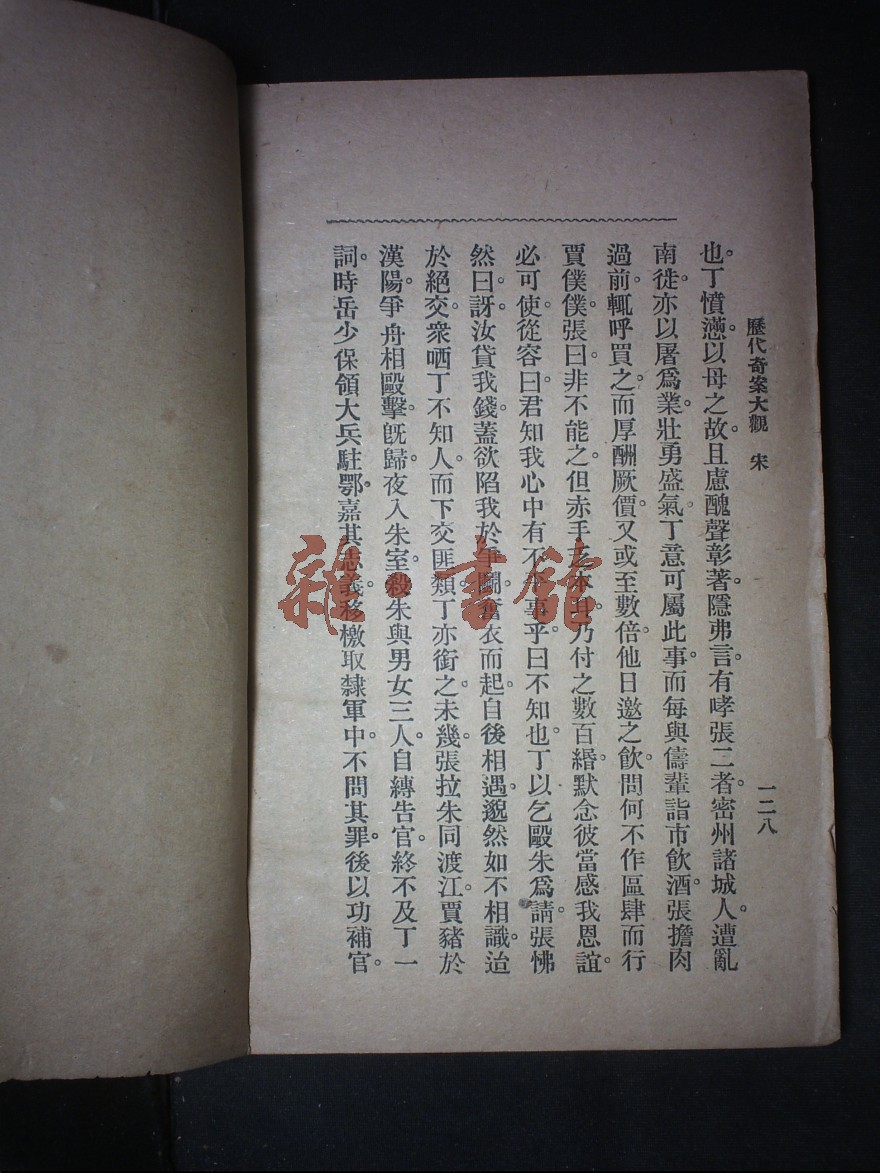 歷代奇案大觀 宋
一二八
也。丁憤懣。以母之故。且慮醜聲彰著。隱弗言。有哮張二者。密州諸城人。遭亂
南徙。亦以屠爲業。壯勇盛氣。丁意可屬此事。而每與儔輩詣市飲酒。張擔肉
過前。輒呼買之。而厚酬厥價。又或至數倍。他日邀之飲。問何不作區肆而行
賈僕僕。張曰。非不能之。但赤手乏本耳。乃付之數百緡。默念彼當感我恩誼。
必可使。從容曰。君知我心中有不平事乎。曰不知也。丁以乞毆朱爲請。張怫
然曰。訝汝貸我錢。蓋欲陷我於爭鬭。奮衣而起。自後相遇。邈然如不相識。迨
於絕交。衆哂丁不知人。而下交匪類。丁亦銜之。未幾。張拉朱同渡江。賈豬於
漢陽。爭舟相毆擊。旣歸。夜入朱室。殺朱與男女三人。自縛告官。終不及丁一
詞。時岳少保領大兵駐鄂。嘉其志義。移檄取隸軍中。不問其罪。後以功補官。
雜書館